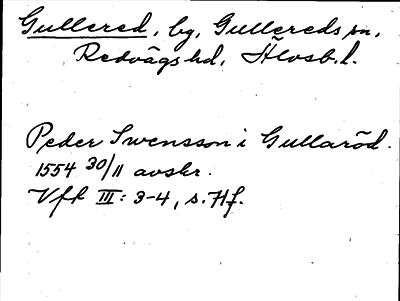 Gullered, by, Gullereds sn,
Redvägs hd, Älvsb. l.
Peder Swensson i Gullaröd.
1554 30/11 avskr.
Vft III: 3-4, s. 71 f.